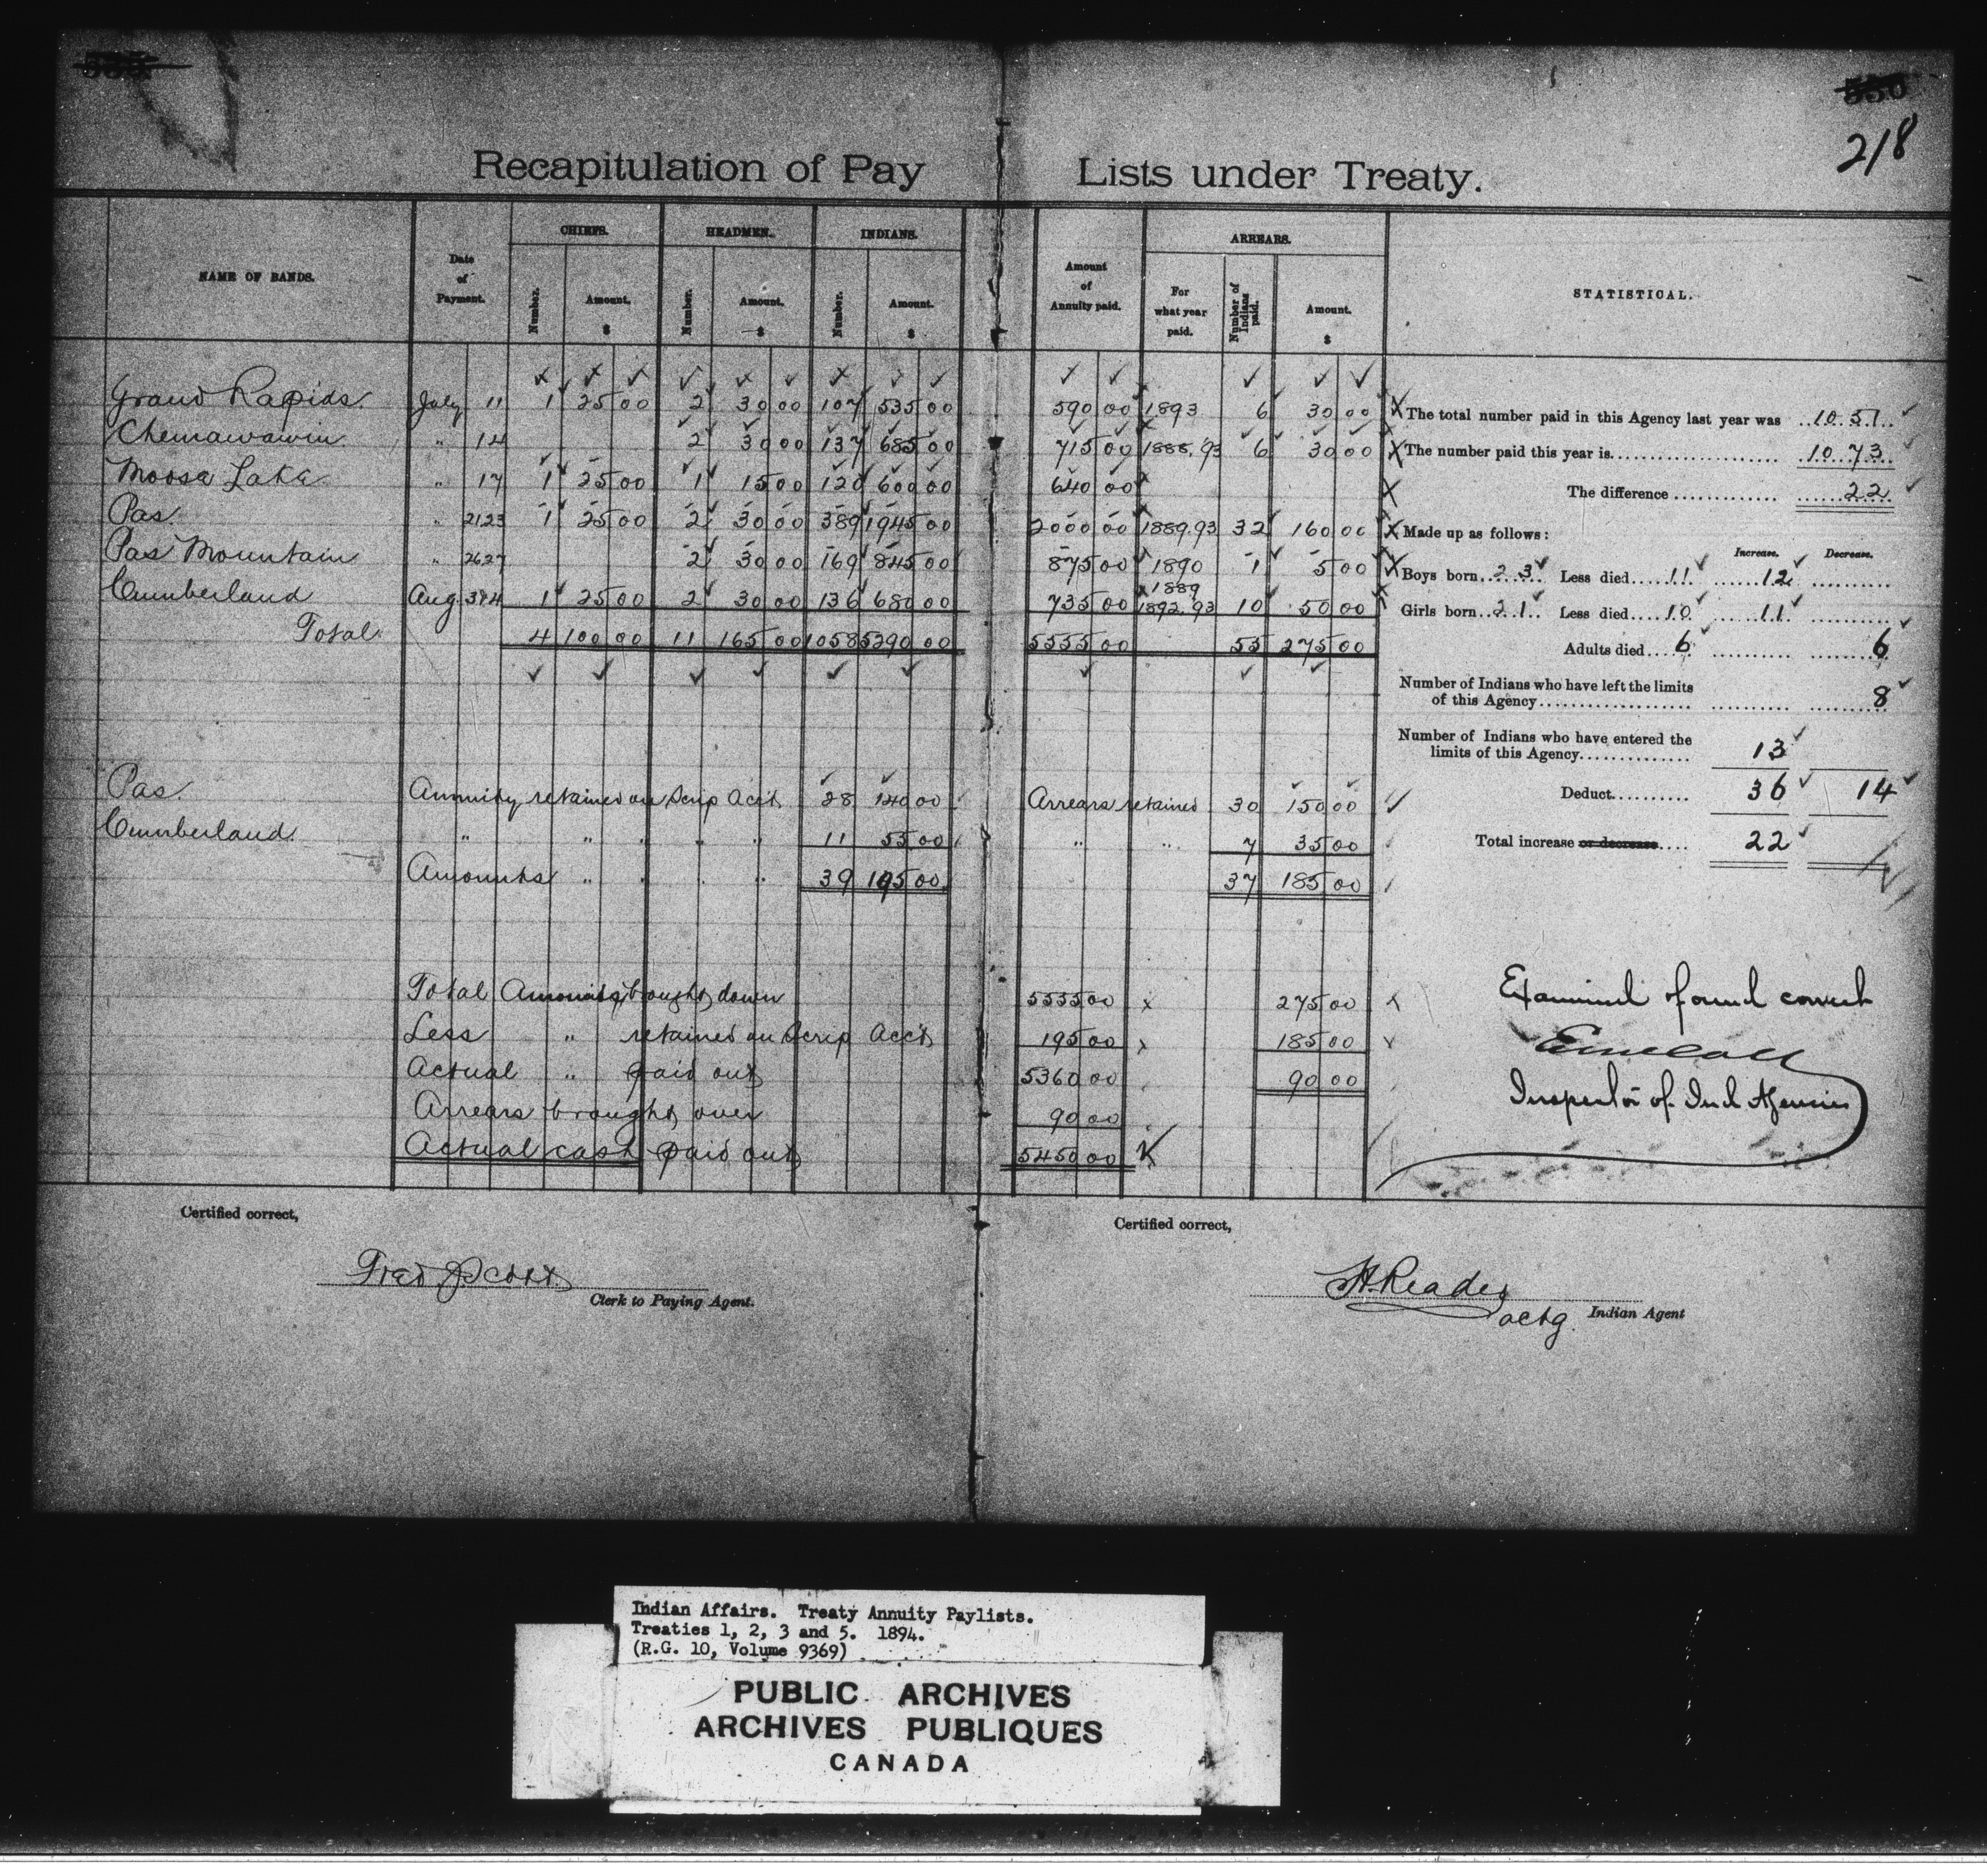 535
550
218
Recapitulation of Pay Lists under Treaty.
NAME OF BANDS. Date of Payment. CHIEFS. HEADMEN. INDIANS. Amount of Annuity paid. ARREARS. STATISTICAL.
Number. Amount. $ Number. Amount. $ Number. Amount. $ For what year paid. Number of Indians paid. Amount. $
Grand Rapids. July 11 1 25 00 2 30 00 107 535 00 590 00 1893 6 30 00
Chemawawin " 14 2 30 00 137 685 00 715 00 1888.93 6 30 00
Moose Lake " 17 1 25 00 1 15 00 120 600 00 640 00
Pas. " 21.23 1 25 00 2 30 00 389 1945 00 2000 00 1889.93 32 160 00
Pas Mountain " 26.27 2 30 00 169 845 00 875 00 1890 1 5 00
Cumberland Aug. 3&4 1 25 00 2 30 00 136 680 00 735 00 1889 1892.93 10 50 00
Total 4 100 00 11 165 00 1058 5290 00 5555 00 55 275 00
Pas. Annuity retained on Scrip Acct 28 140 00 Arrears retained 30 150 00
Cumberland. " " " " " 11 55 00 " " 7 35 00
Amounts " " " " 39 195 00 37 185 00
Total Amounts brought down 5555 00 275 00
Less " retained on Scrip Acct 195 00 185 00
Actual " paid out 5360 00 90 00
Arrears brought over 90 00
Actual cash paid out 5450 00
The total number paid in this Agency last year was 1051
The number paid this year is 1073
The difference 22
Made up as follows:
Increase. Decrease.
Boys born 23 Less died 11 12
Girls born 21 Less died 10 11
Adults died 6 6
Number of Indians who have left the limits
of this Agency 8
Number of Indians who have entered the
limits of this Agency 13
Deduct 36 14
Total increase or decrease 22
Examined & found correct
Inspector of Ind Agencies
Certified correct,
Fred J. Scott
Clerk to Paying Agent.
Certified correct,
Reader
actg. Indian Agent
Indian Affairs. Treaty Annuity Paylists.
Treaties 1, 2, 3 and 5. 1894.
(R.G. 10, Volume 9369)
PUBLIC ARCHIVES
ARCHIVES PUBLIQUES
CANADA